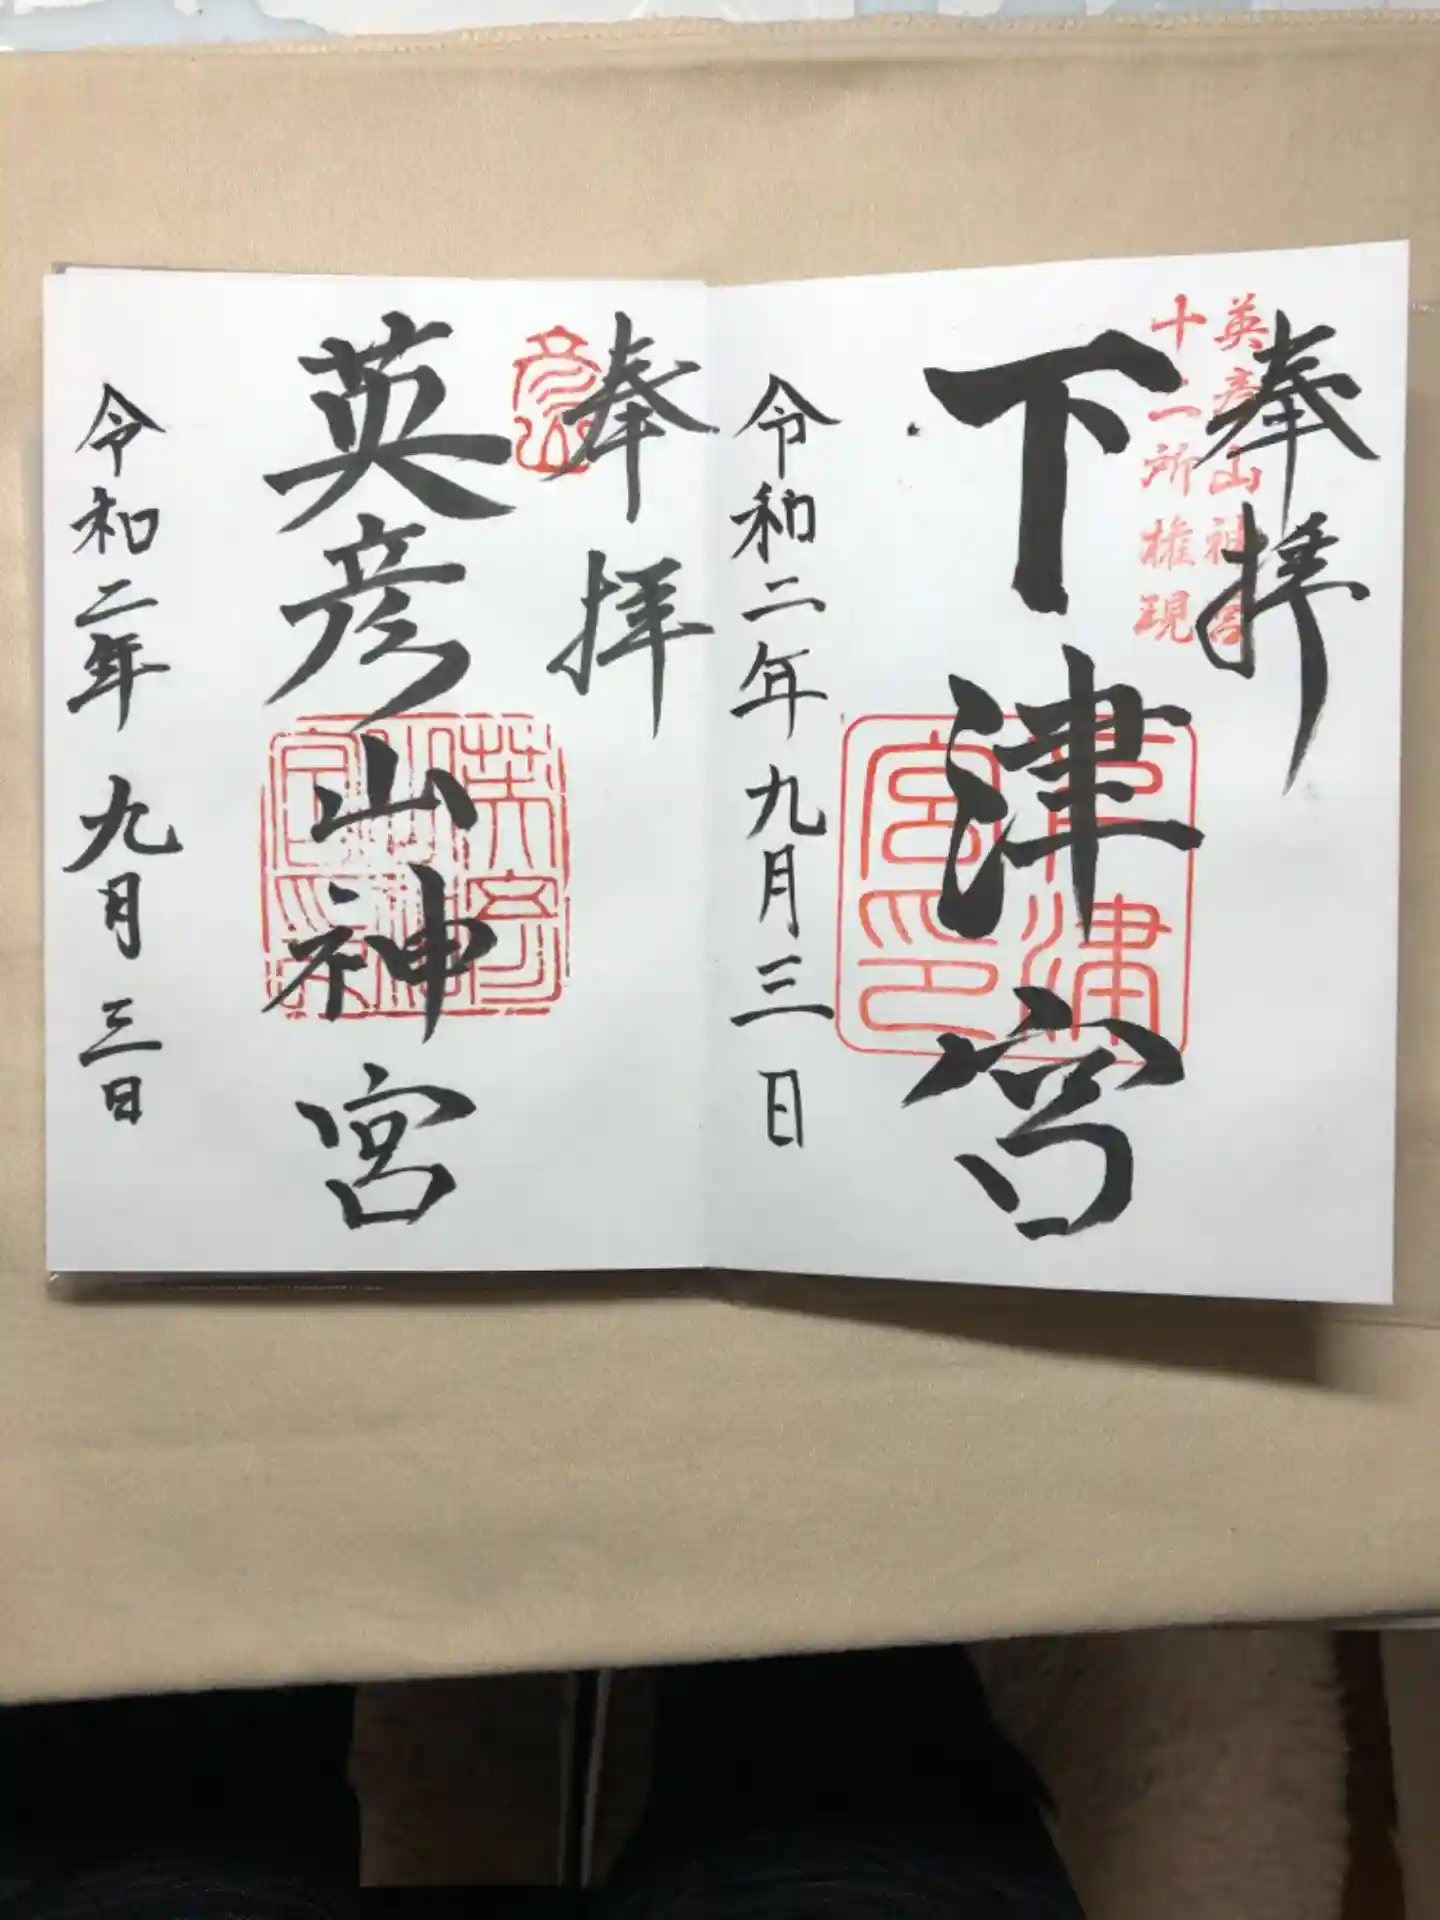 奉拝
英彦山神宮
十二所権現
下津宮
下津宮印
令和二年九月三日
奉拝
彦山
英彦山神宮
令和二年九月三日